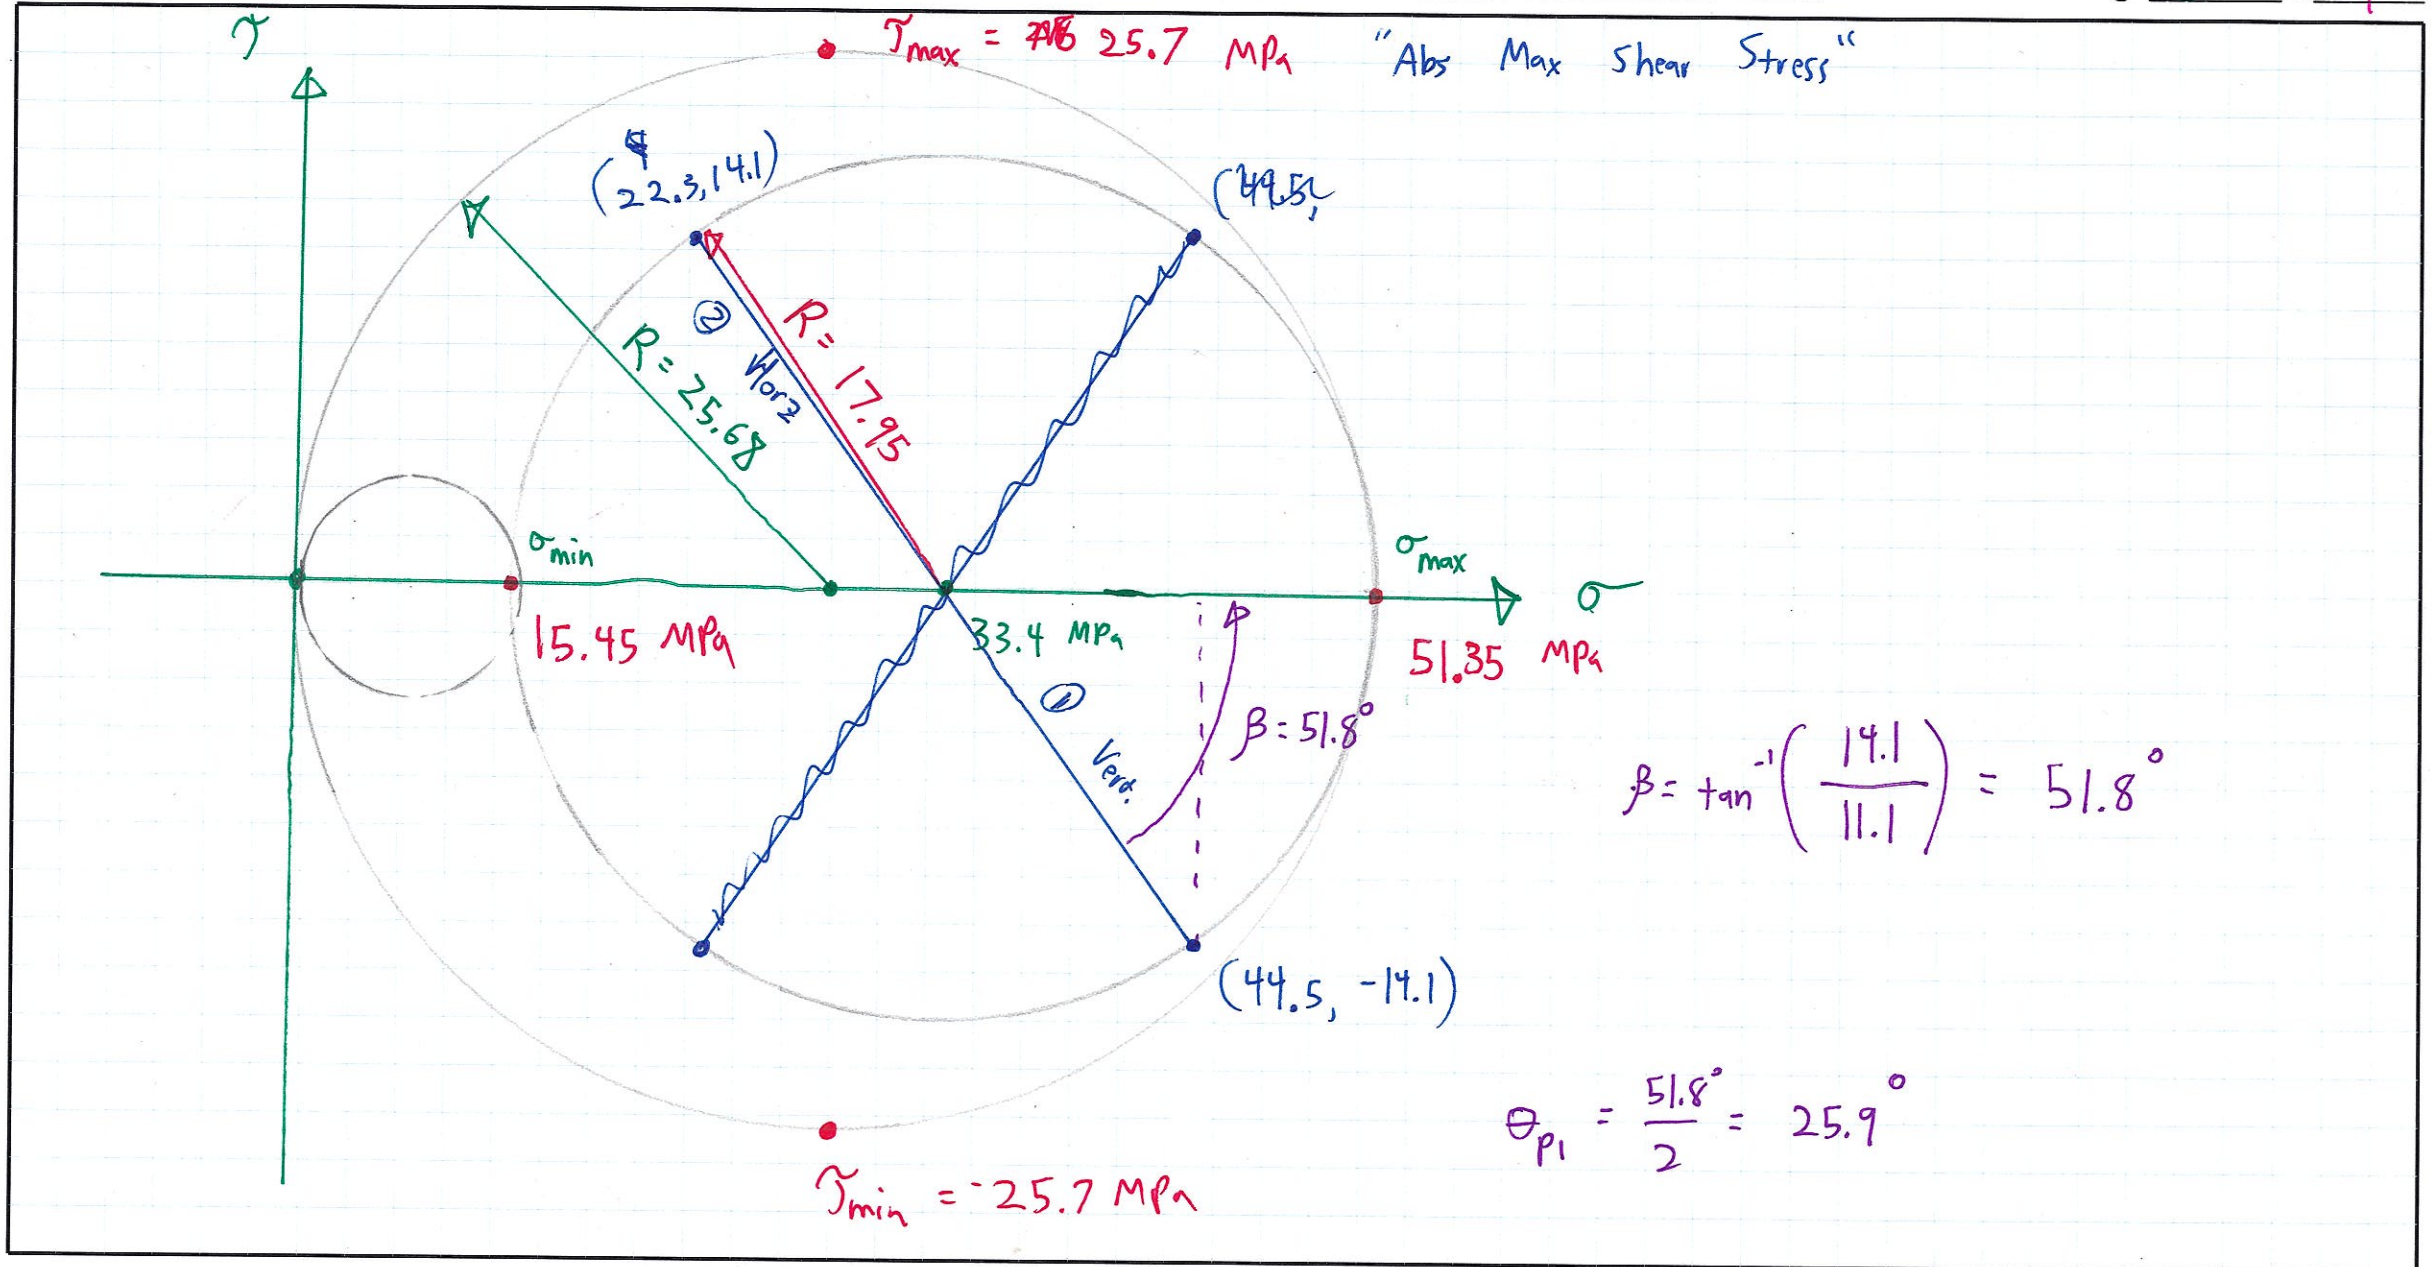 τ
τmax = 25.7 MPa "Abs Max Shear Stress"
(22.3, 14.1)
(44.5,
② Horz
R = 17.95
R = 25.68
σmin
σmax
σ
15.45 MPa
33.4 MPa
51.35 MPa
① Vert.
β = 51.8°
β = tan⁻¹(14.1/11.1) = 51.8°
(44.5, -14.1)
θp1 = 51.8°/2 = 25.9°
τmin = -25.7 MPa